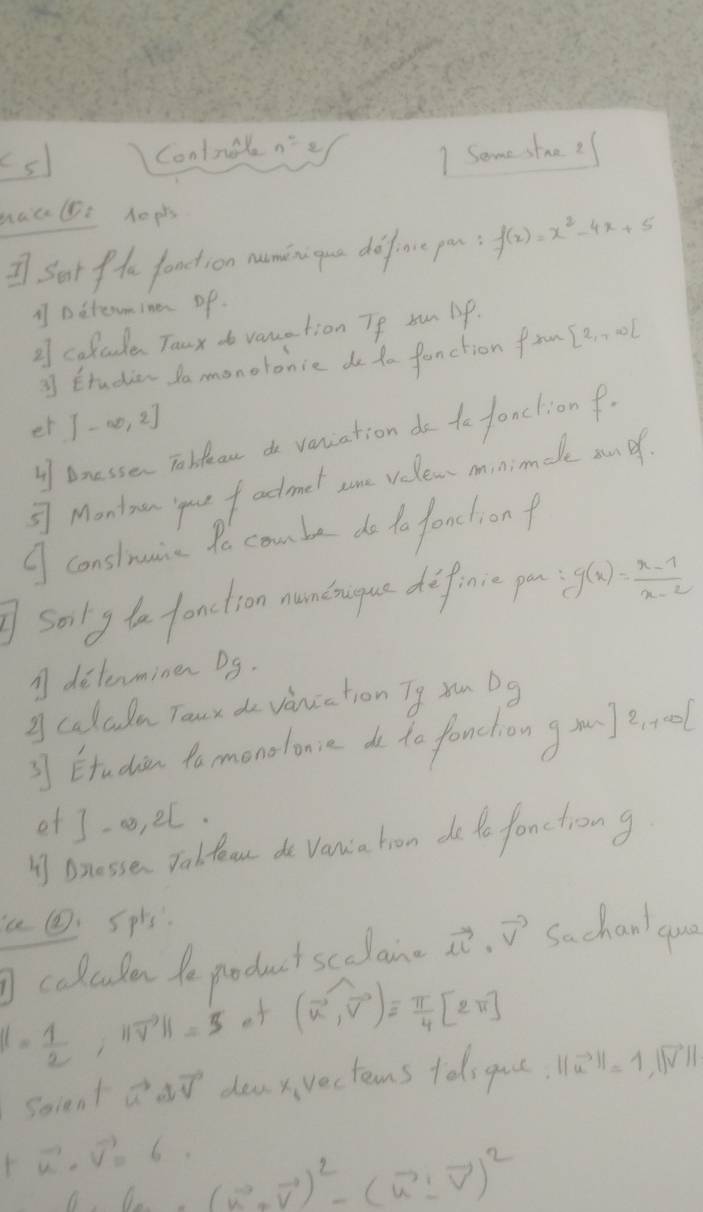 Contrôle n°2 Semestre 2
10pts
I] Soit f la fonction numérique définie par : f(x) = x² - 4x + 5
1] Déterminer Df.
2] calculer Taux de variation Tf sur Df.
3] Étudier la monotonie de la fonction f sur [2,+∞[
et ]-∞,2]
4] Dresser Tableau de variation de la fonction f.
5] Montrer que f admet une valeur minimale sur Df.
6] construire la courbe de la fonction f
I] Soit g la fonction numérique définie par : g(x) = x-1/x-2
1] déterminer Dg.
2] calculer Taux de variation Tg sur Dg
3] Étudier la monotonie de la fonction g sur ]2,+∞[
et ]-∞,2[.
4] Dresser Tableau de variation de la fonction g
ice ②: 5pts.
1] calculer le produit scalaire u⃗.v⃗ sachant que
|| = 1/2 ; ||v⃗|| = 5 et (u⃗,v⃗) ≡ π/4 [2π]
Soient u⃗ et v⃗ deux vecteurs tels que : ||u⃗|| = 1, ||v⃗||
u⃗.v⃗ = 6.
(u⃗+v⃗)² - (u⃗-v⃗)²